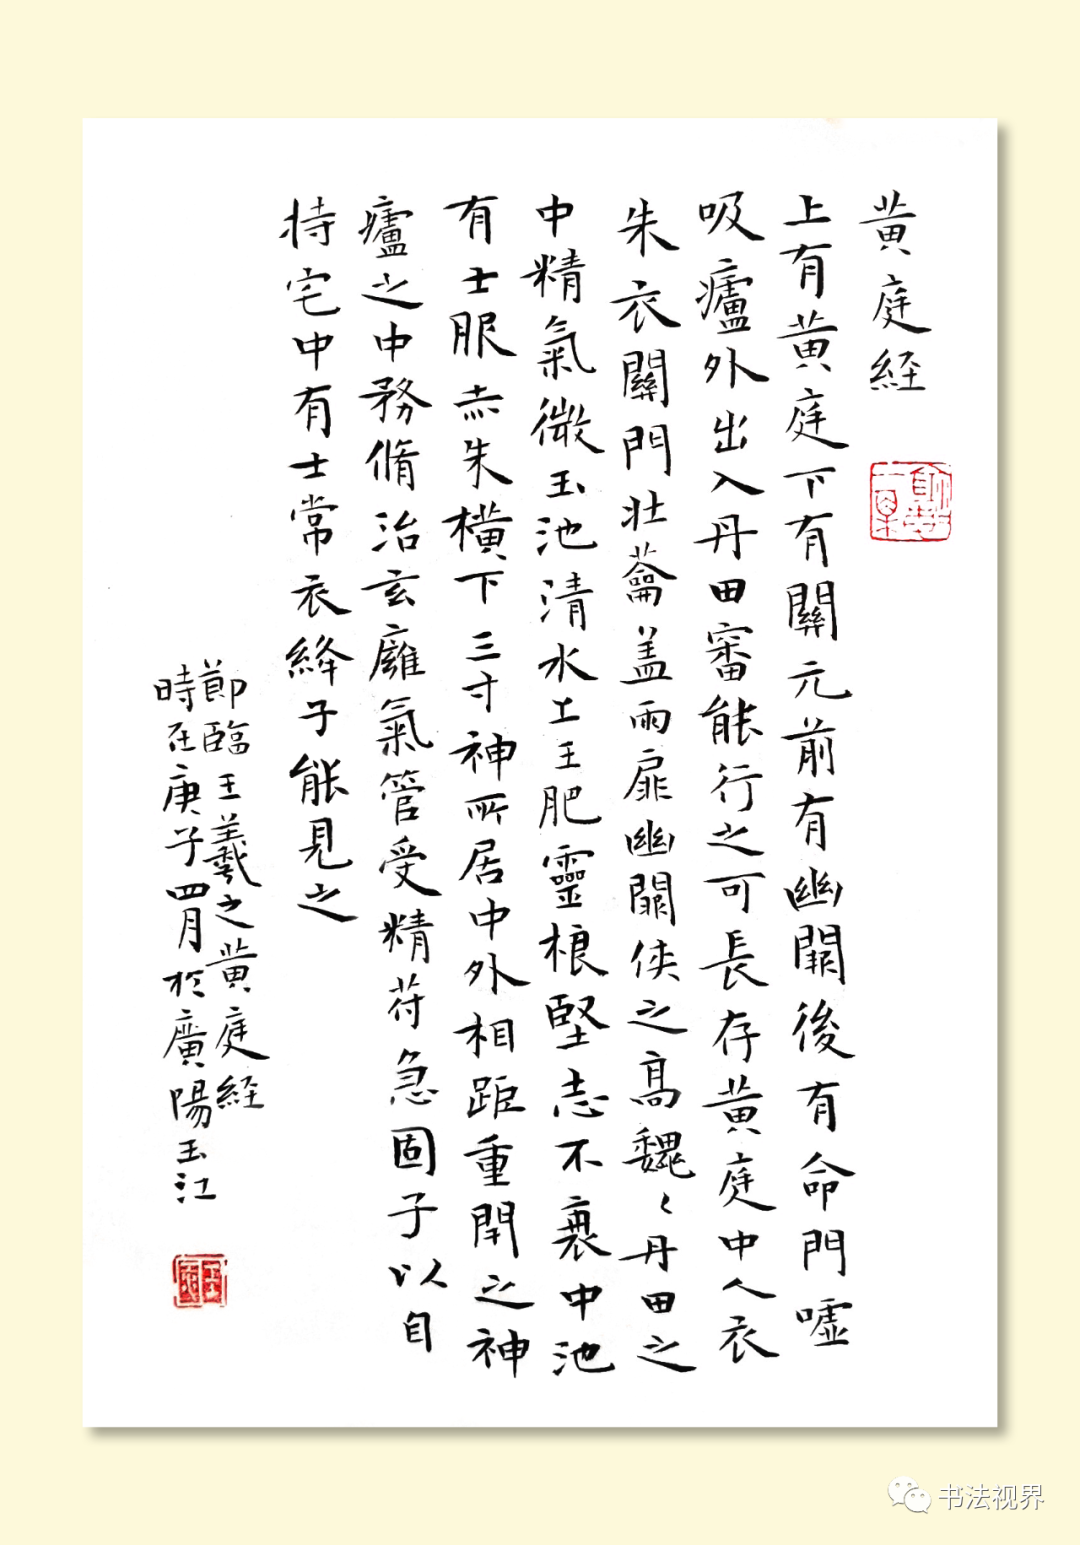 黄庭経
上有黄庭下有關元前有幽闕後有命門噓
吸廬外出入丹田審能行之可長存黄庭中人衣
朱衣關門壮蘥盖兩扉幽闕侠之高魏〻丹田之
中精氣微玉池清水上王肥靈根堅志不衰中池
有士服赤朱横下三寸神所居中外相距重閇之神
廬之中務脩治玄癰氣管受精符急固子以自
持宅中有士常衣絳子能見之
節臨王羲之黄庭経
時在庚子四月於廣陽玉江
书法视界